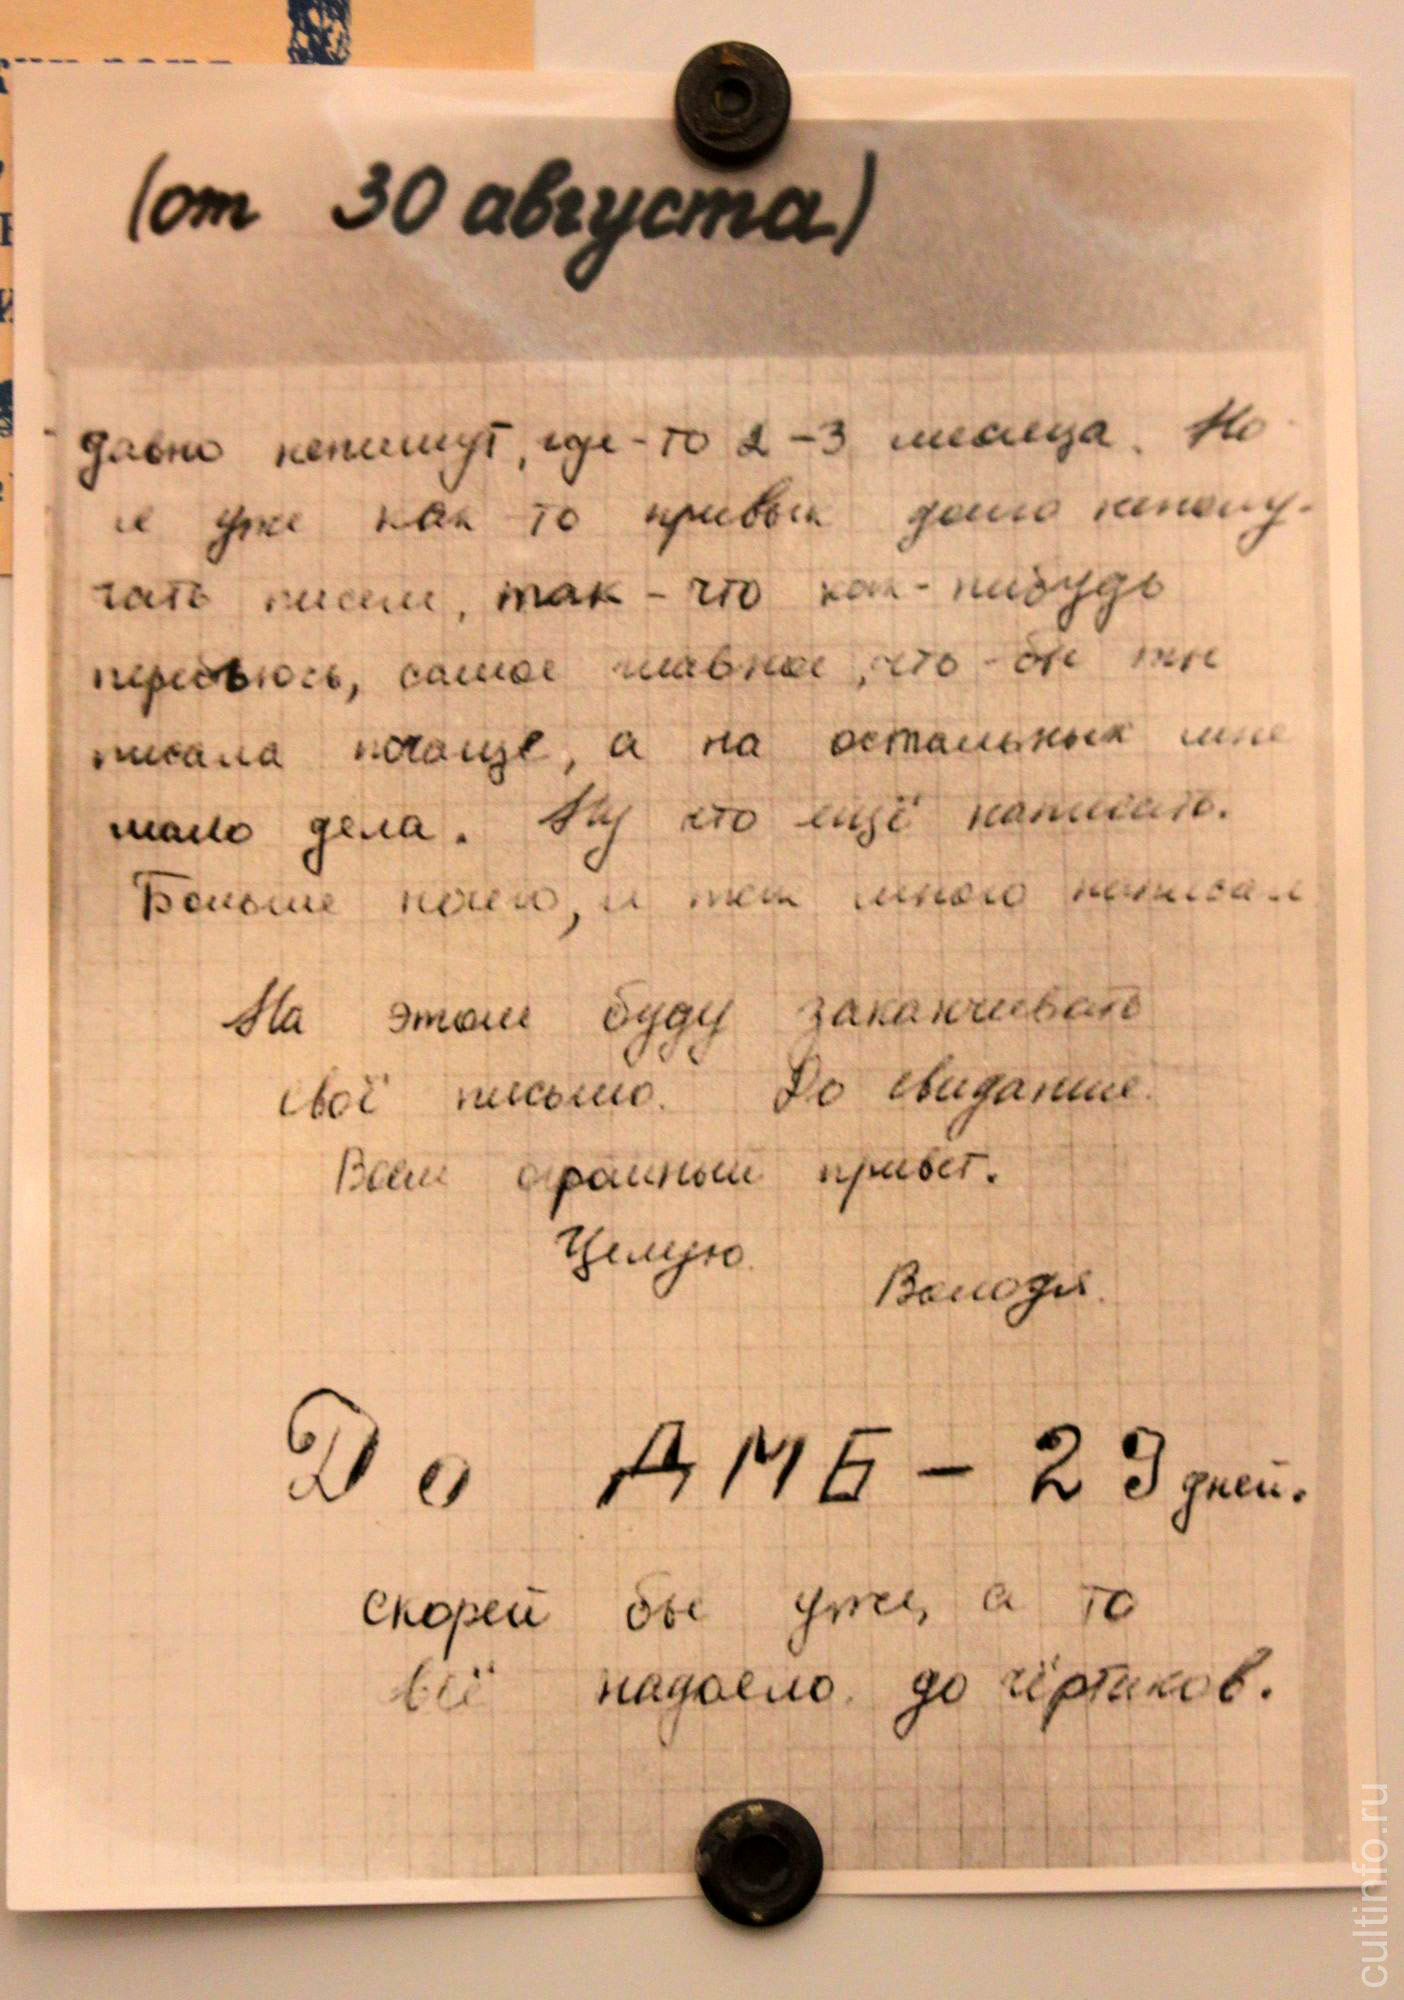 (от 30 августа)
давно непишут, где-то 2-3 месяца. Но
я уже как то привык долго неполу-
чать писем, так-что как-нибудь
перебьюсь, самое главное, что-бы ты
писала почаще, а на остальных мне
мало дела. Ну что ещё написать.
Больше нечего, и так много написал
На этом буду заканчивать
своё письмо. До свидание.
Всем огромный привет.
Целую.
Володя.
До ДМБ - 29 дней.
скорей бы уже, а то
всё надоело до чёртиков.
cultinfo.ru